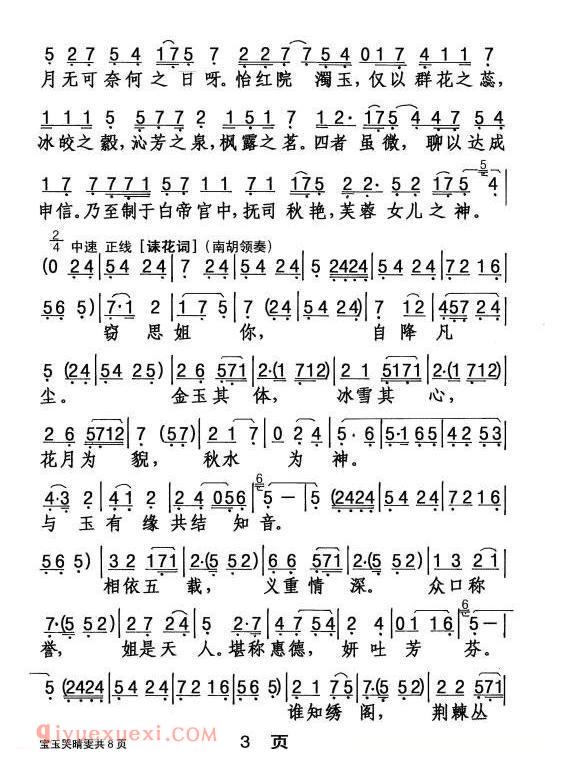 5 2 7 5 4 1 7 5 7 2 2 7 5 4 0 1 7 4 1 7
月无可奈何之日呀。怡红院 濁玉,仅以群花之蕊,
1 1 1 5 5 7 7 2 7 7 1 1 2· 1 7 5 4 4 7 5 4
冰皎之縠,沁芳之泉,枫露之茗。四者 虽微,聊以达成
申信。乃至制于白帝宫中,抚司秋艳,芙蓉女儿之神。
2/4 中速 正线 [诔花词](南胡领奏)
(0 2 4 | 5 4 2 4 | 7 2 4 | 5 4 2 4 | 5 2424 | 5 4 2 4 | 7 2 1 6 |
5 6 5) | 7·1 2 | 1 7 5 | 7 (2 4 | 5 4 2 4 | 5 5) | 7 1 2 | 457 2 4 |
窃思姐 你, 自降凡
5 (2 4 | 5 4 2 4 | 5 2 5) | 2 6 571 | 2·(1 712) | 2 1 5171 | 2·(1 712) |
尘。 金玉其 体, 冰雪其 心,
2 6 5712 | 7 (5 7) | 2 1 7 | 0 2 4 | 5· 6 | 5·1 6 5 | 4 2 5 3 |
花月为 貌, 秋水 为 神。
4·3 2 | 4 1 2 | 2 4 056 | 5 — | 5 (2424 | 5 4 2 4 | 7 2 1 6 |
与 玉有缘共结 知音。
5 6 5) | 3 2 171 | 2·(5 5 2) | 6 6 571 | 2·(5 5 2) | 1 3 2 1 |
相依五 载, 义重情 深。 众口称
7·(5 5 2) | 2 7 2 4 | 5 2·7 | 4 7 5 4 | 7 2· | 0 1 1 6 | 5 — |
誉, 姐是天人。堪称惠德,妍吐芳 芬。
5 (2424 | 5 4 2 4 | 7 2 1 6 | 5 5 2) | 2 1 7 | 2·(5 5 2) | 2 2 571 |
谁知绣 阁, 荆棘丛
qiyuexuexi.com
宝玉哭晴雯共8页
3 页